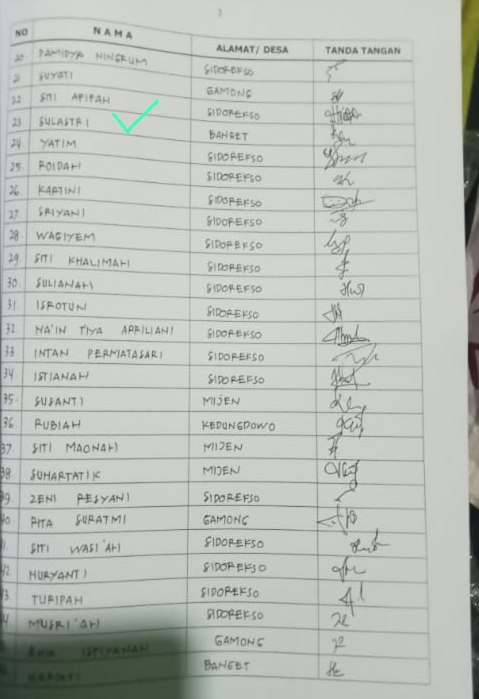 2
NO NAMA ALAMAT/ DESA TANDA TANGAN
20 PAMIDYA NINGRUM SIDOREKSO
21 SUYATI GAMONG
22 SITI AFIFAH SIDOREKSO
23 SULASTRI BANGET
24. YATIM SIDOREKSO
25. ROIDAH SIDOREKSO
26. KARTINI SIDOREKSO
27 SRIYANI SIDOREKSO
28 WAGIYEM SIDOREKSO
29 SITI KHALIMAH SIDOREKSO
30. SULIANAH SIDOREKSO
31. ISROTUN SIDOREKSO
32. NA'IN TIYA APRILIANI SIDOREKSO
33. INTAN PERMATASARI SIDOREKSO
34. ISTIANAH SIDOREKSO
35. SUSANTI MIJEN
36. RUBIAH KEDUNGDOWO
37 SITI MAONAH MIJEN
38 SUHARTATIK MIJEN
39 ZENI RESYANI SIDOREKSO
40 RITA SURATMI GAMONG
SITI WASI'AH SIDOREKSO
42 NURYANTI SIDOREKSO
3 TURIPAH SIDOREKSO
MUSRI'AH SIDOREKSO
GAMONG
BANGET